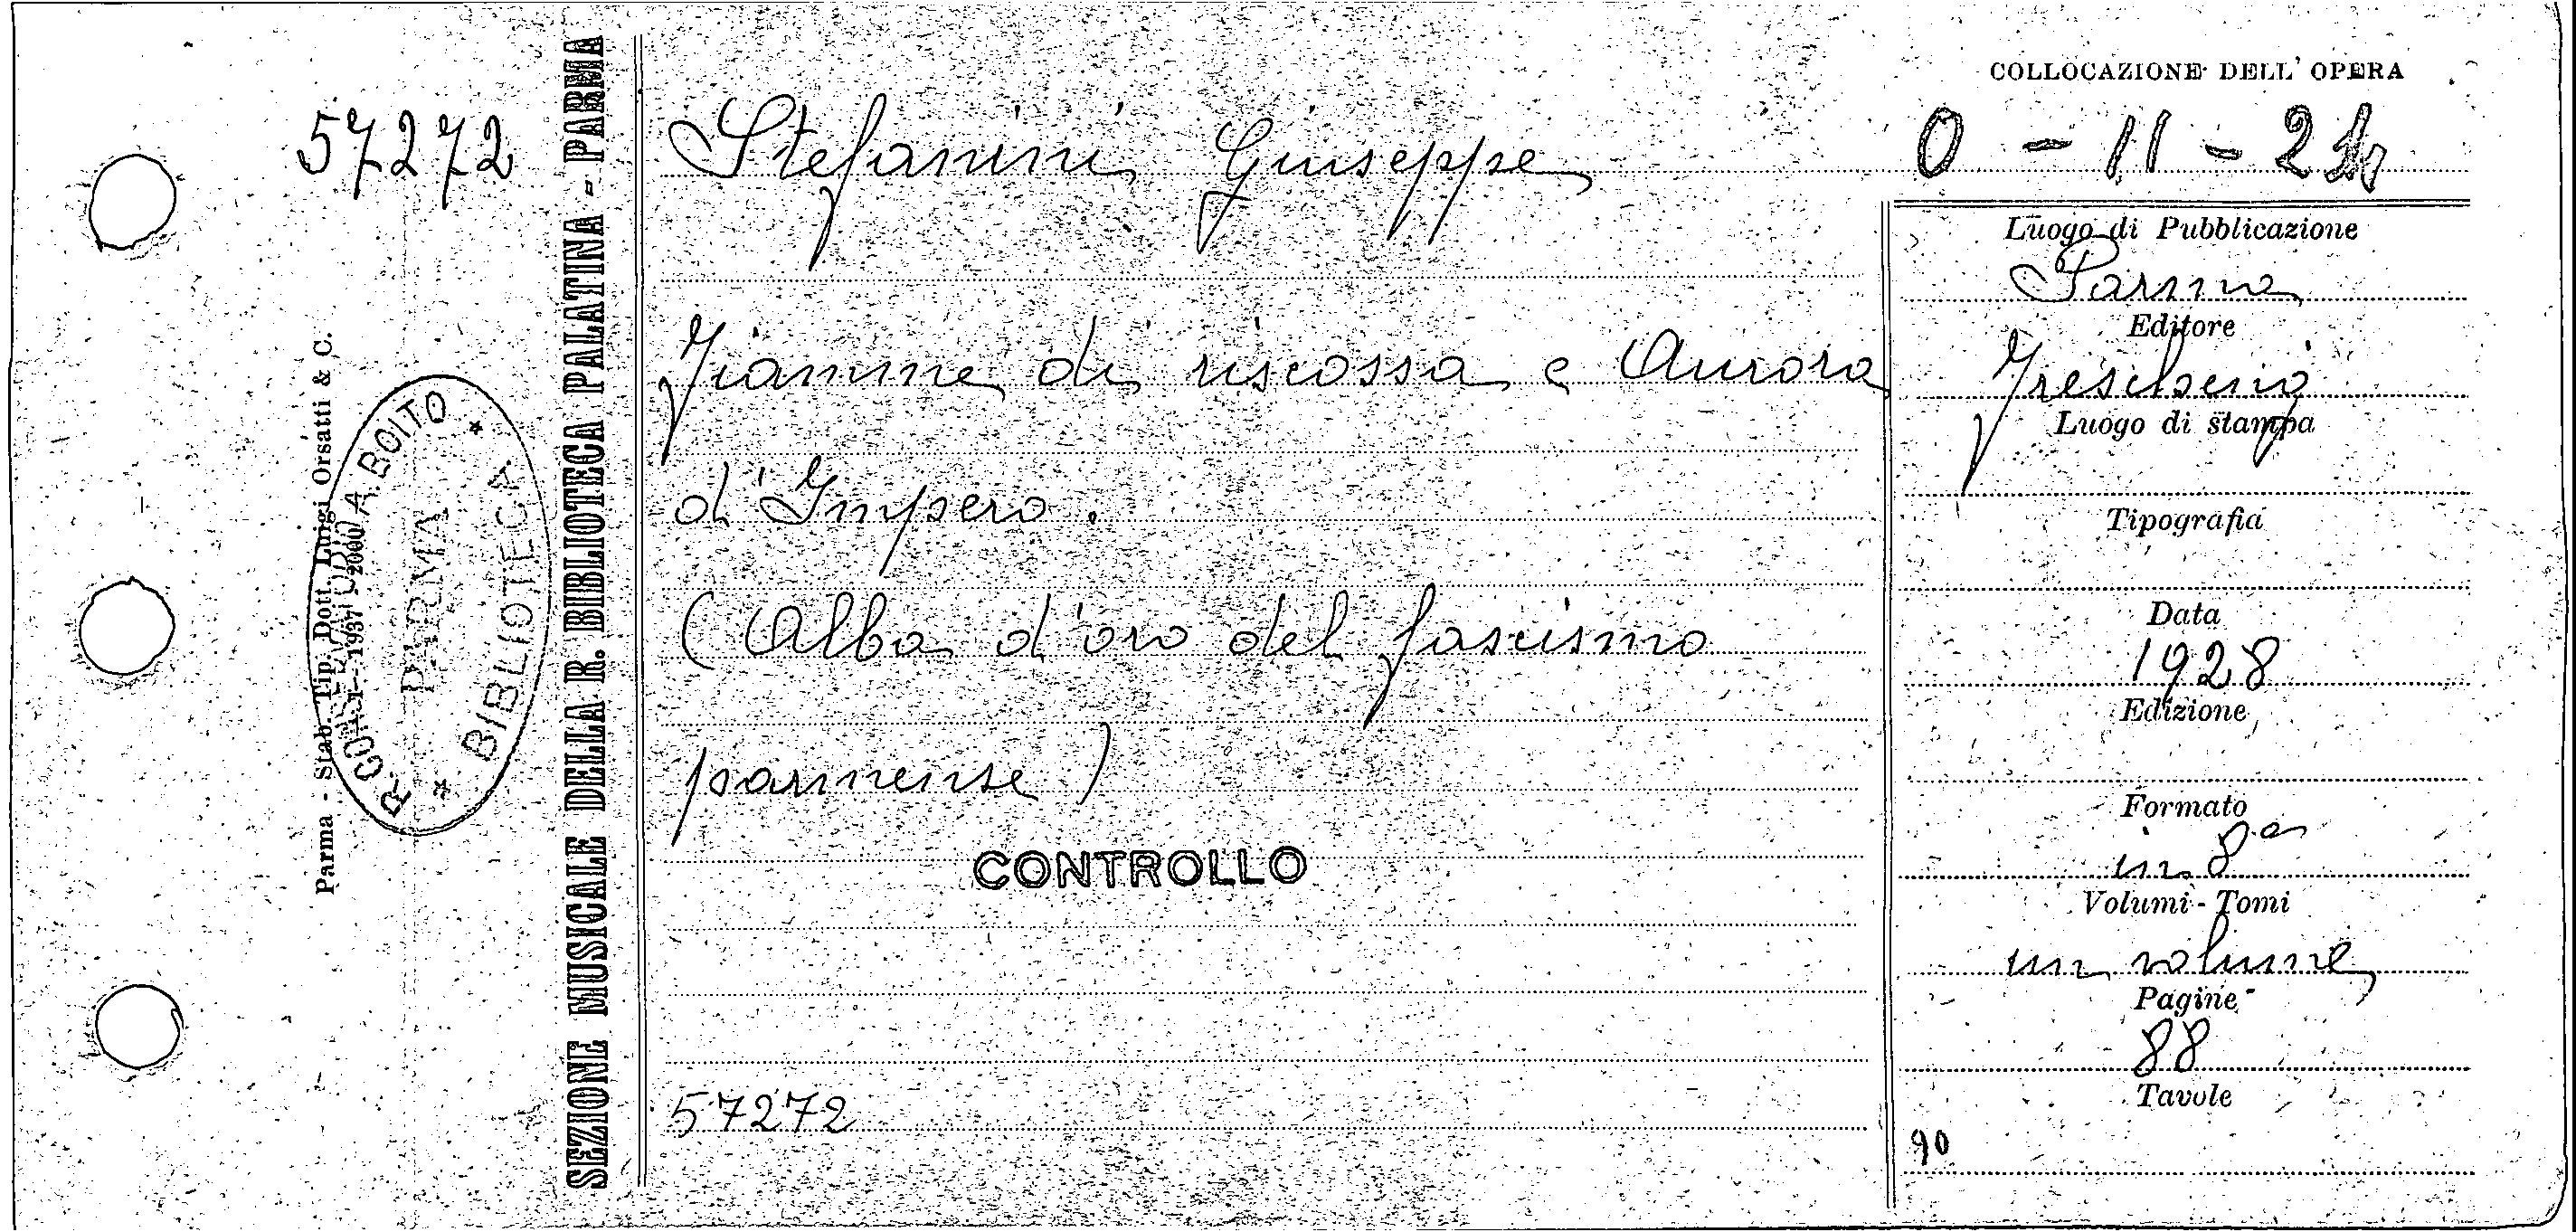 57272
Parma - Stab. Tip. Dott. Luigi Orsatti & C.
1-1937 2000
R. CONSERVATORIO A. BOITO
PARMA
* BIBLIOTECA *
SEZIONE MUSICALE DELLA R. BIBLIOTECA PALATINA - PARMA
Stefanini Giuseppe
Fiamme di riscossa e Aurora
d'Impero.
(Alba d'oro del fascismo
parmense)
CONTROLLO
57272
COLLOCAZIONE DELL'OPERA
O - II - 
Luogo di Pubblicazione
Parma
Editore
Fresching
Luogo di stampa
Tipografia
Data
1928
Edizione
Formato
in 8°
Volumi - Tomi
un volume
Pagine
88
Tavole
90